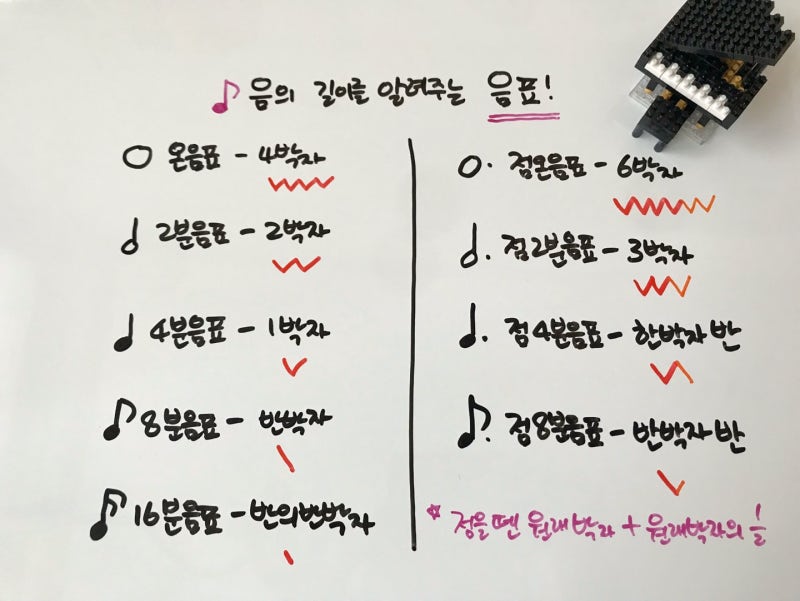 음의 길이를 알려주는 음표!
온음표 - 4박자
2분음표 - 2박자
4분음표 - 1박자
8분음표 - 반박자
16분음표 - 반의반박자
점온음표 - 6박자
점2분음표 - 3박자
점4분음표 - 한박자 반
점8분음표 - 반박자 반
* 점을 땐 원래박자 + 원래박자의 1/2